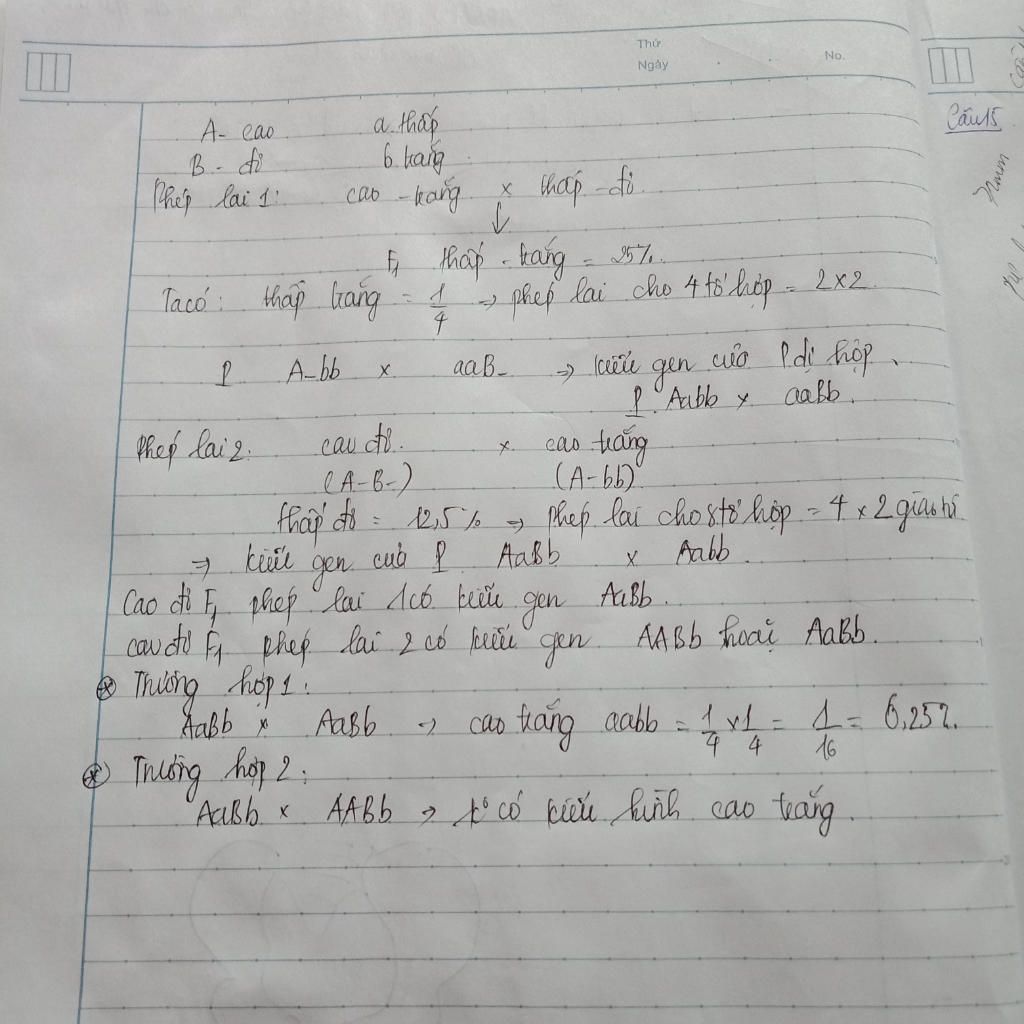 Thứ
Ngày No.
A- cao a. thấp
B - đỏ b. trắng
Câu 15
Phép lai 1: cao - trắng x thấp - đỏ
↓
F₁ thấp - trắng = 25%.
Ta có: thấp trắng = 1/4 → phép lai cho 4 tổ hợp = 2 x 2
P A-bb x aaB- => kiểu gen của P dị hợp
P. Aabb x aaBb.
Phép lai 2: cao đỏ x cao trắng
(A-B-) (A-bb)
thấp đỏ = 12,5% => phép lai cho 8 tổ hợp = 4 x 2 giao tử
=> kiểu gen của P AaBb x Aabb.
Cao đỏ F₁ phép lai 1 có kiểu gen AaBb.
cao đỏ F₁ phép lai 2 có kiểu gen AABb hoặc AaBb.
* Trường hợp 1:
AaBb x AaBb → cao trắng aabb = 1/4 x 1/4 = 1/16 = 6,25%.
* Trường hợp 2:
AaBb x AABb → k° có kiểu hình cao trắng.